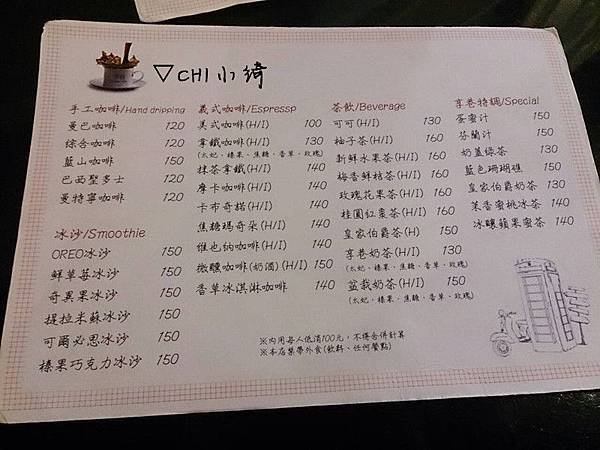 ▽CHI小綺
手工咖啡/Hand dripping
曼巴咖啡 120
綜合咖啡 120
藍山咖啡 150
巴西聖多士 120
曼特寧咖啡 120
冰沙/Smoothie
OREO冰沙 150
鮮草莓冰沙 150
奇異果冰沙 150
提拉米蘇冰沙 150
可爾必思冰沙 150
榛果巧克力冰沙 150
義式咖啡/Espressp
美式咖啡(H/I) 100
拿鐵咖啡(H/I) 130
(太妃、榛果、焦糖、香草、玫瑰)
抹茶拿鐵(H/I) 140
摩卡咖啡(H/I) 140
卡布奇諾(H/I) 140
焦糖瑪奇朵(H/I) 140
維也納咖啡(H/I) 140
微醺咖啡(奶酒)(H/I) 150
香草冰淇淋咖啡 140
茶飲/Beverage
可可(H/I) 130
柚子茶(H/I) 160
新鮮水果茶(H/I) 160
梅香鮮桔茶(H/I) 160
玫瑰花果茶(H/I) 160
桂圓紅棗茶(H/I) 160
皇家伯爵茶(H) 150
享巷奶茶(H/I) 130
(太妃、榛果、焦糖、香草、玫瑰)
盆栽奶茶(H/I) 150
(太妃、榛果、焦糖、香草、玫瑰)
享巷特調/Special
蛋蜜汁 150
芬蘭汁 150
奶蓋綠茶 130
藍色珊瑚礁 150
皇家伯爵奶茶 130
茉香蜜桃冰茶 140
冰釀蘋果蜜茶 140
※內用每人低消100元,不得合併計算
※本店禁帶外食(飲料、任何餐點)